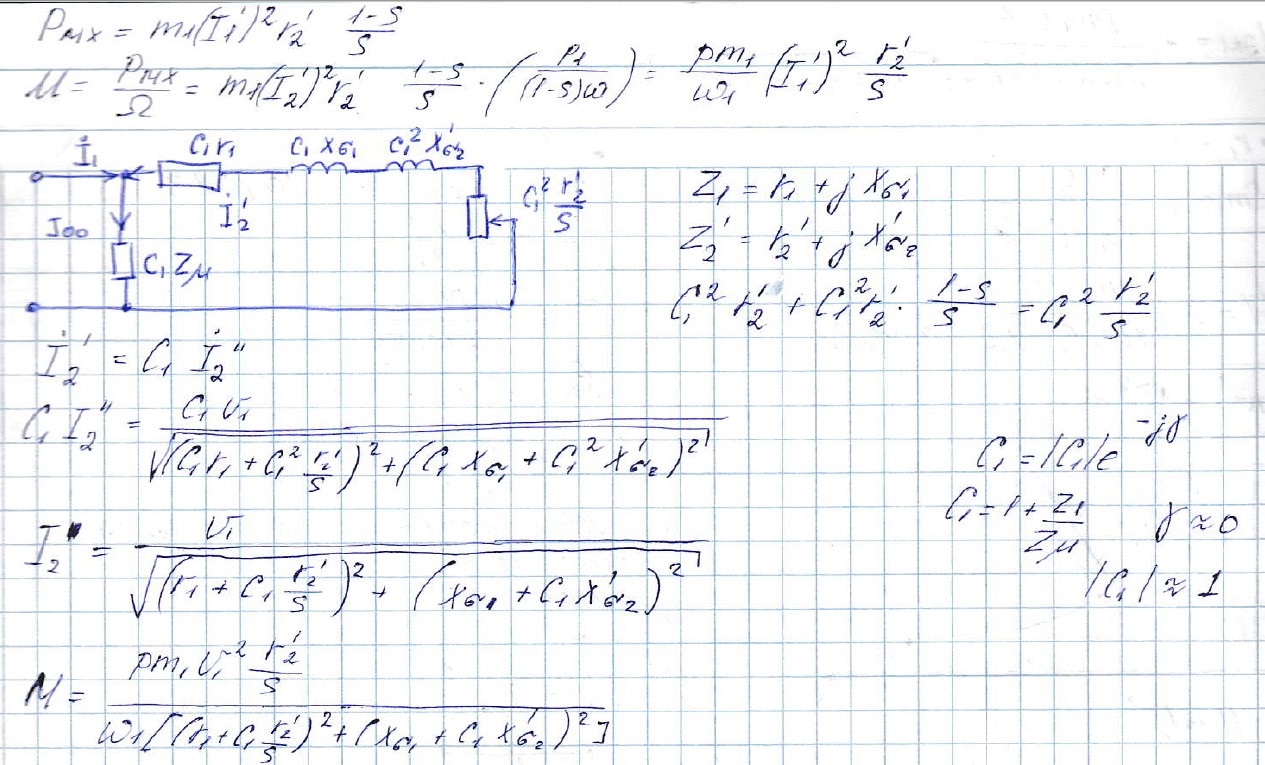 Pмх = m₁(I₁')² r₂' (1-s)/s
M = Pмх/Ω = m₁(I₂')² r₂' (1-s)/s · (P₁/((1-s)ω)) = pm₁/ω₁ (I₁')² r₂'/s
İ₁ C₁r₁ C₁xσ₁ C₁²x'σ₂
İ₂' C₁² r₂'/s
I₀₀
C₁Zμ
Z₁ = r₁ + j xσ₁
Z₂' = r₂' + j x'σ₂
C₁² r₂' + C₁² r₂' · (1-s)/s = C₁² r₂'/s
İ₂' = C₁ İ₂''
C₁ I₂'' = C₁U₁ / √((C₁r₁ + C₁² r₂'/s)² + (C₁xσ₁ + C₁²x'σ₂)²)
C₁ = |C₁|e^(-jγ)
C₁ = 1 + Z₁/Zμ γ ≈ 0
|C₁| ≈ 1
I₂'' = U₁ / √((r₁ + C₁ r₂'/s)² + (xσ₁ + C₁x'σ₂)²)
M = pm₁U₁² r₂'/s / ω₁[(r₁ + C₁ r₂'/s)² + (xσ₁ + C₁x'σ₂)²]